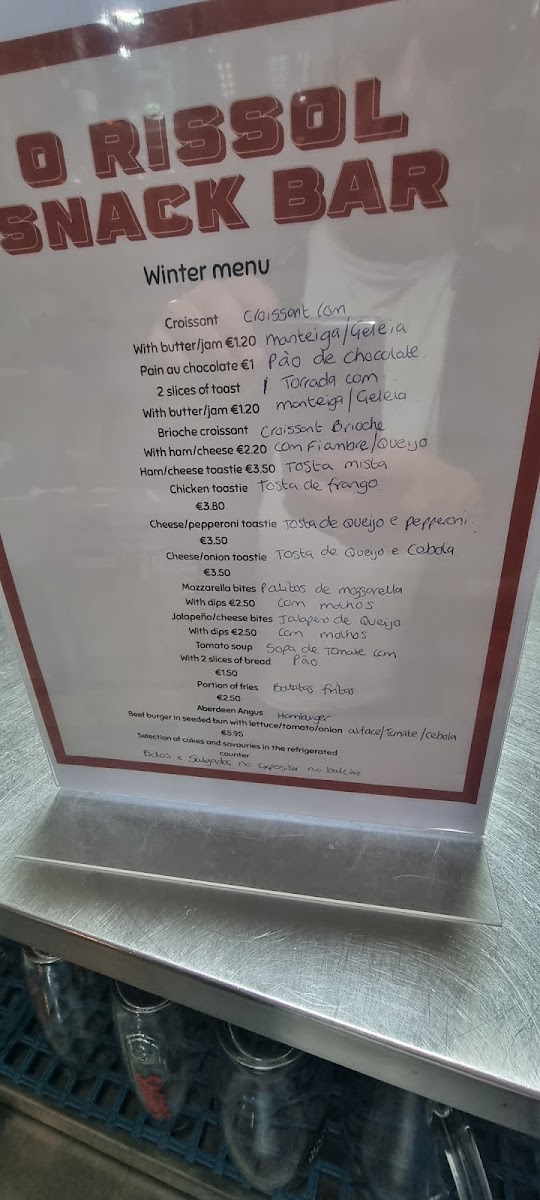 O RISSOL
SNACK BAR
Winter menu
Croissant Croissant com
With butter/jam €1.20 manteiga/Geleia
Pain au chocolate €1 Pão de chocolate
2 slices of toast Torrada com
With butter/jam €1.20 manteiga/Geleia
Brioche croissant Croissant Brioche
With ham/cheese €2.20 com Fiambre/Queijo
Ham/cheese toastie €3.50 Tosta mista
Chicken toastie Tosta de frango
€3.80
Cheese/pepperoni toastie Tosta de Queijo e pepperoni
€3.50
Cheese/onion toastie Tosta de Queijo e Cebola
€3.50
Mozzarella bites Palitos de mozzarella
With dips €2.50 com molhos
Jalapeño/cheese bites Jalapeno de Queijo
With dips €2.50 com molhos
Tomato soup Sopa de Tomate com
With 2 slices of bread Pão
€1.50
Portion of fries Batatas fritas
€2.50
Aberdeen Angus Hamburger
Beef burger in seeded bun with lettuce/tomato/onion alface/Tomate/cebola
€5.95
Selection of cakes and savouries in the refrigerated
counter
Bolos e Salgados no Expositor no balcão